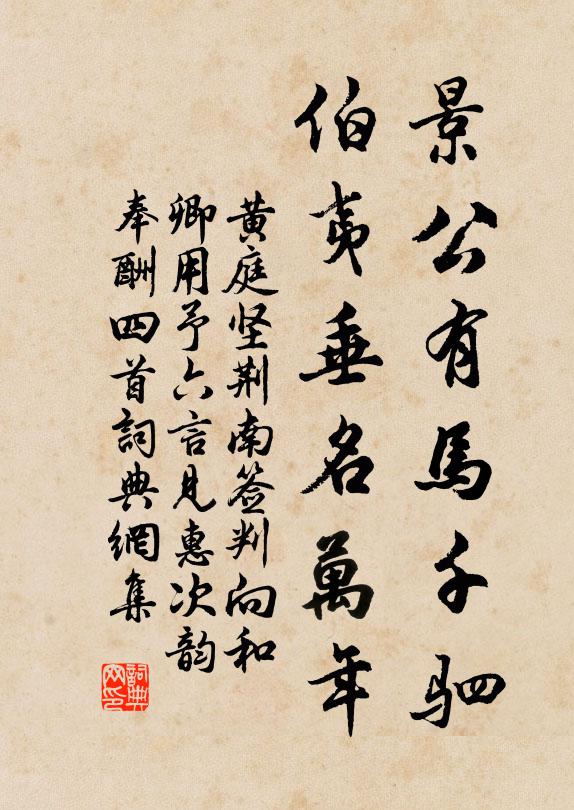 景公有馬千駟
伯夷垂名萬年
黄庭坚荆南签判向和
卿用予六言見惠次韵
奉酬四首詞典網集
詞典網印